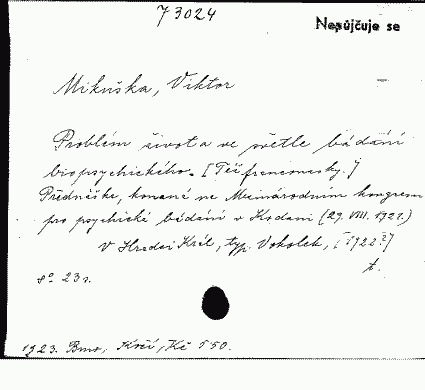 73024
Nepůjčuje se
Mikuška, Viktor
Problém života ve světle bádání
biopsychického. [Též francouzsky.]
Přednáška, konaná na Mezinárodním kongresu
pro psychické bádání v Kodani (29. VIII. 1921.)
V Hradci Král., typ. Vokolek, [1922?]
t.
8° 23 s.
1923. Brno, Kočí, Kč 1·50.